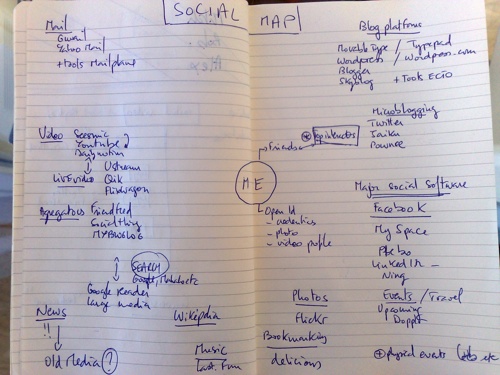 SOCIAL MAP
Mail
Gmail
Yahoo Mail
+tools Mailplane
Video Seesmic
Youtube
Dailymotion
Ustream
Live video Qik
Flixwagon
Aggregators Friendfeed
Socialthing
MYBLOGLOG
SEARCH
Google,
Google Reader
Large media
News
!!
Old Media ?
Wikipedia
Music
Last.fm
Blog platforms
Movable Type / Typepad
Wordpress / Wordpress.com
Blogger
Skyblog + Tools ECTO
Microblogging
Twitter
Jaiku
Pownce
Friends
ME
Open Id
- credentials
- photo
- video profile
Major Social Software
Facebook
My Space
Bebo
LinkedIn -
Ning
Photos
Flickr
Bookmarking
delicious
Events / Travel
Upcoming
Dopplr
+ physical events ( etc